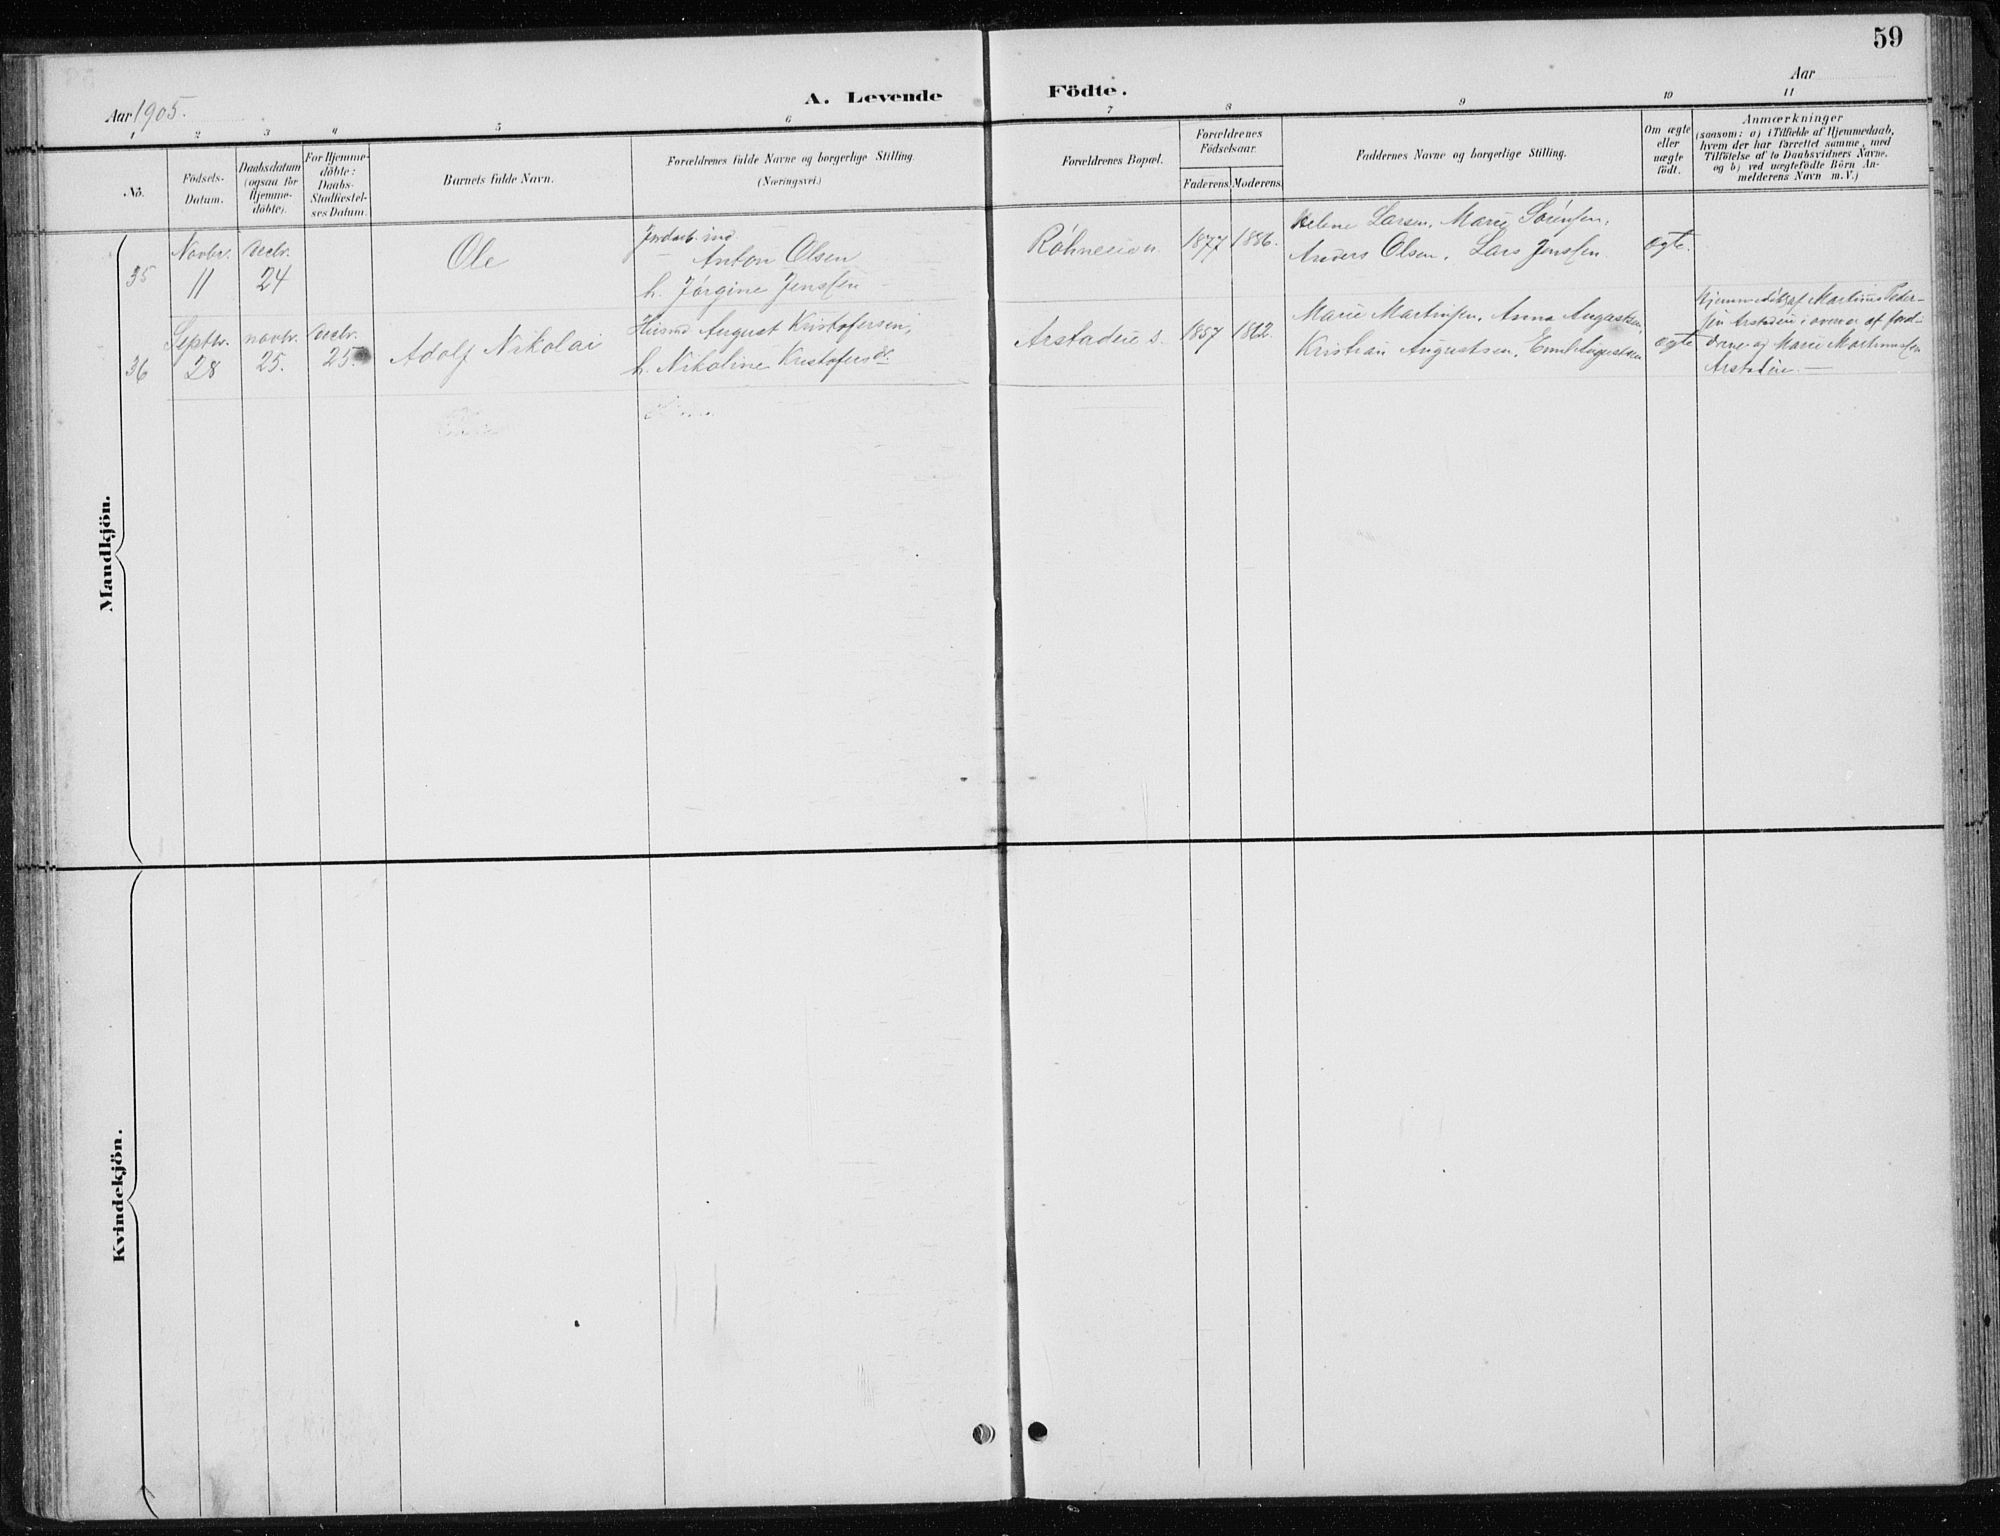 59
Aar 1905.
A. Levende Födte.
Aar
1 2 3 4 5 6 7 8 9 10 11
No.
Födsels-
Datum.
Daabsdatum
(ogsaa for
Hjemme-
döbte).
For Hjemme-
döbte:
Daabs-
Stadfæstel-
ses Datum.
Barnets fulde Navn.
Forældrenes fulde Navne og borgerlige Stilling.
(Næringsvei.)
Forældrenes Bopæl.
Forældrenes
Födselsaar.
Faderens.
Moderens.
Faddernes Navne og borgerlige Stilling.
Om ægte
eller
uægte
födt.
Anmærkninger
(saasom: a) i Tilfælde af Hjemmedaab,
hvem der har forrettet samme, med
Tilföielse af to Daabsvidners Navne,
og b) ved uægtefödte Börn An-
melderens Navn m. V.)
Mandkjön.
35
Novbr.
11
Decbr.
24
Ole
Anton Olsen
h. Jørgine Jenssen
1877
Helene Larsen, Marie Sørensen,
Anders Olsen, Lars Jenssen
ægte.
36
Septbr.
28
novbr.
25.
Decbr.
25.
Adolf Nikolai
Husmd August Kristofersen,
h. Nikoline Kristofersdr.
1857
1862
Marie Martinsen, Anna Augustsen,
Kristian Augustsen, Emil Augustsen
ægte
Hjemmedøbt af Martinus Peder-
sen
og Marie Martinussen
Kvindekjön.